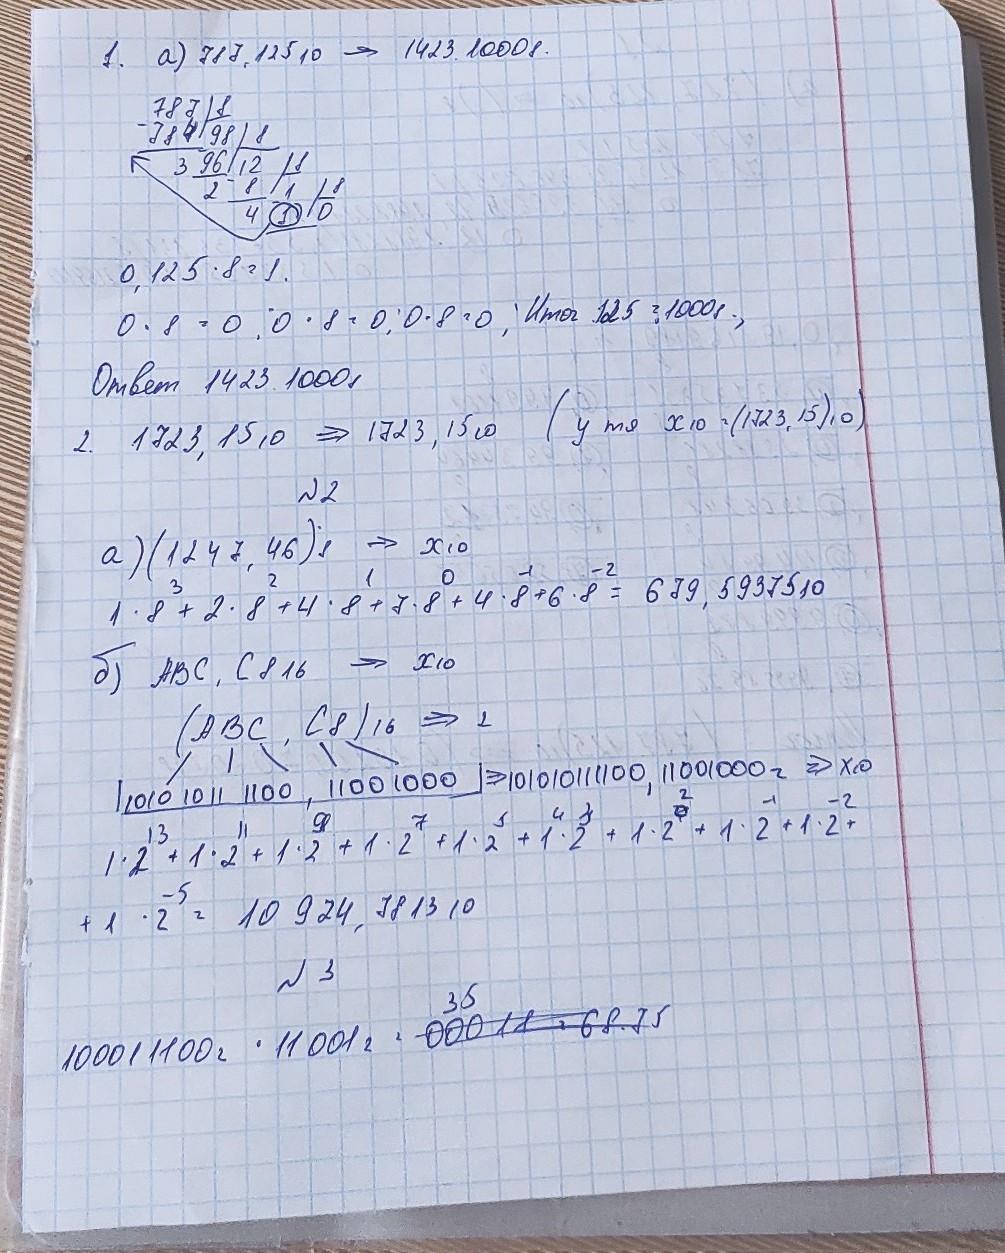 1. а) 787,125₁₀ → 1423.1000₈.
787 |8
-784 |98 |8
3 96 |12 |8
2 -8 |1 |8
4 1 |0
0,125·8=1.
0·8=0; 0·8=0; 0·8=0; Итог 125=1000₈.,
Ответ 1423.1000₈
2. 1723,15₁₀ ⇒ 1723,15₁₀ (у тя x₁₀=(1723,15)₁₀)
№2
а) (1247,46)₈ ⇒ x₁₀
1·8³+2·8²+4·8¹+7·8⁰+4·8⁻¹+6·8⁻²= 679,59375₁₀
б) ABC,C8₁₆ → x₁₀
(ABC,C8)₁₆ ⇒ 2
1010 1011 1100, 1100 1000 ⇒ 101010111100,11001000₂ ⇒ x₁₀
1·2¹³+1·2¹¹+1·2⁹+1·2⁷+1·2⁵+1·2³+1·2²+1·2⁻¹+1·2⁻²+
+1·2⁻⁵= 10974,7813₁₀
№3
35
100011100₂ · 11001₂ = 00011=68.75